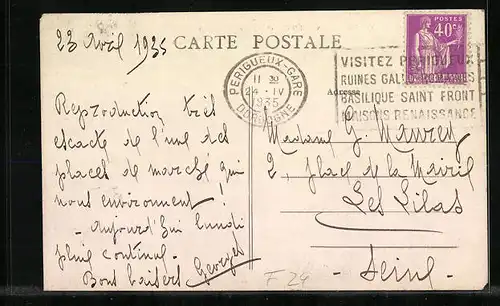 23 avril 1935
CARTE POSTALE
POSTES
40c
PERIGUEUX-GARE
24 - IV
1935
DORDOGNE
VISITEZ PERIGUEUX
RUINES GALLO-ROMAINES
BASILIQUE SAINT FRONT
MAISONS RENAISSANCE
Adresse
Reproduction très
exacte de l'une des
places de marché qui
nous environnent !
- Aujourd'hui lundi
pluie continue -
Bons baisers
Georges
Madame G
2, place de la Mairie
Les Lilas
- Seine -
F 24